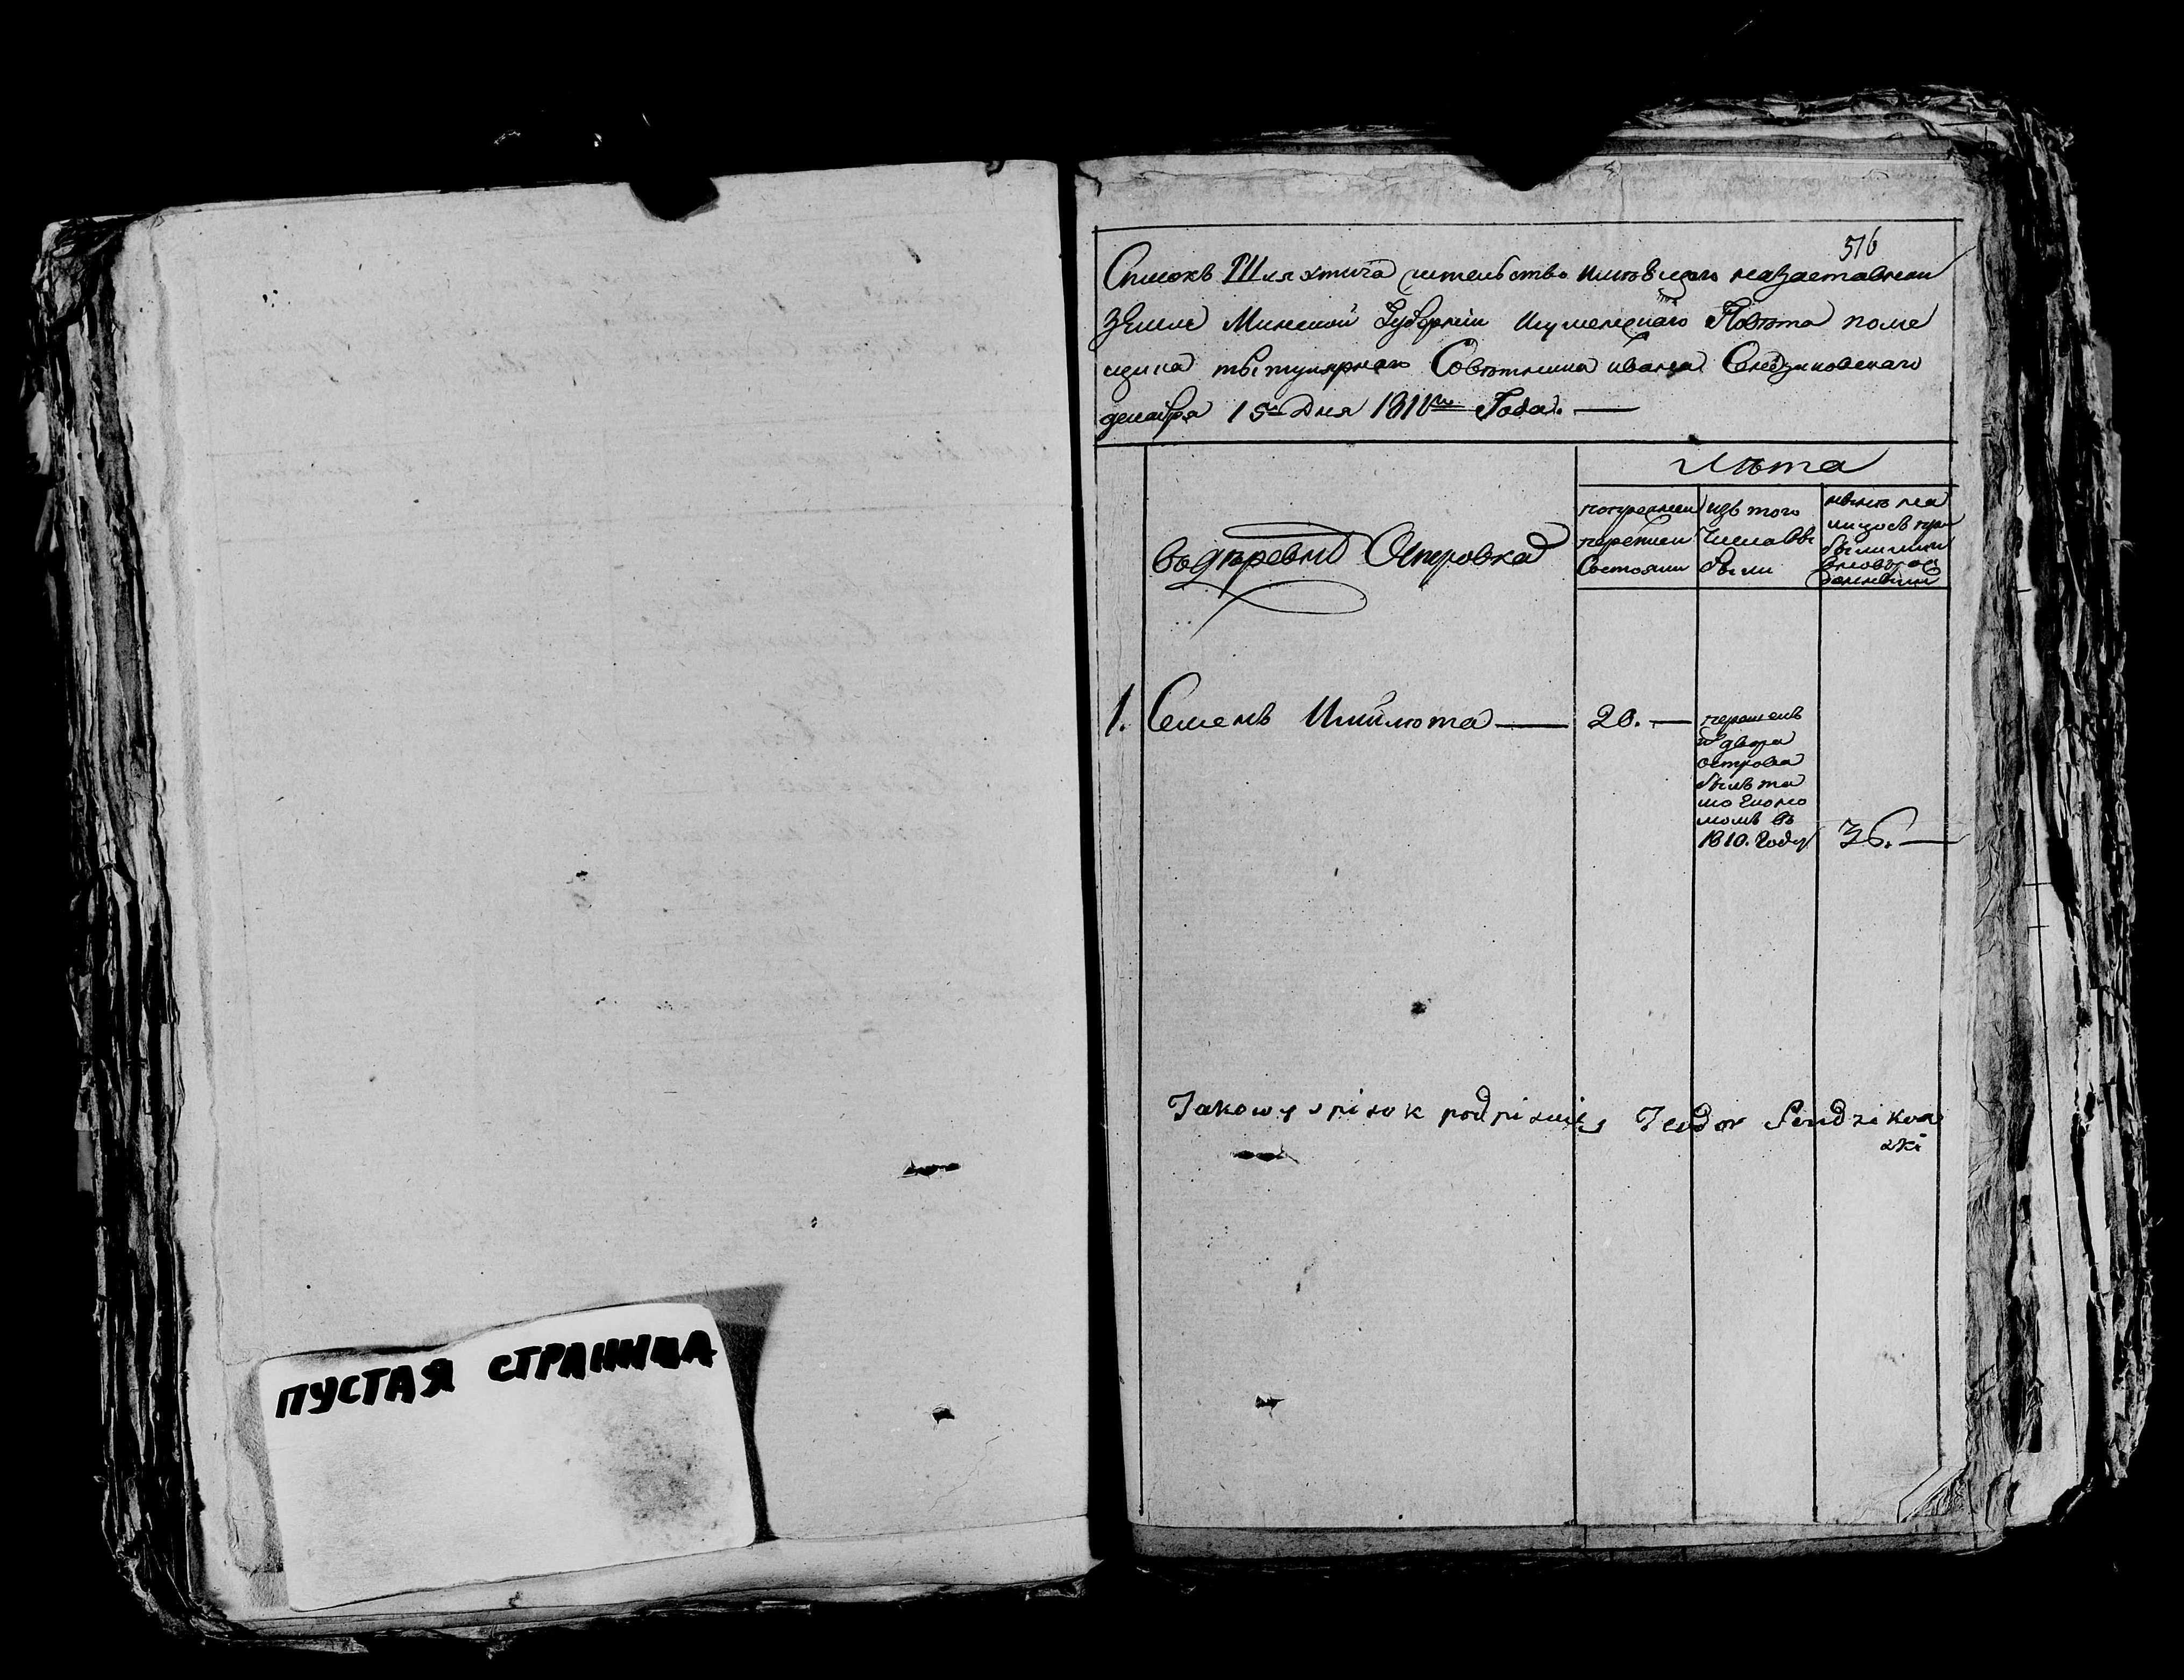 ПУСТАЯ СТРАНИЦА
516
Списокъ Шляхтича жительство имѣющаго на заставной
землѣ Минской Губерніи Игуменскаго Повѣта поме
щика титулярнаго Совѣтника Ивана Сендзиковскаго
декабря 15го Дня 1811го Года. —
Лѣта
въ деревнѣ Островка
по прежней переписи Состояли
изъ того Числа Вы были
нынѣ на лицо съ при былыми
1. Семенъ Шимлюта — 20. —
перешелъ
отъ двора
Островка
былъ та
мо Еконо
момъ въ
1810. Году 36. —
Jakowy spisok podpisuię Teodor Sendzikow
ski